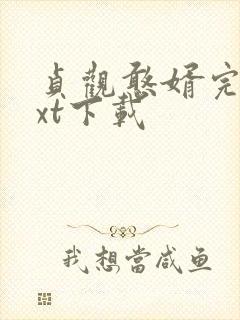 貞觀憨婿完
xt下載
我想當咸鱼